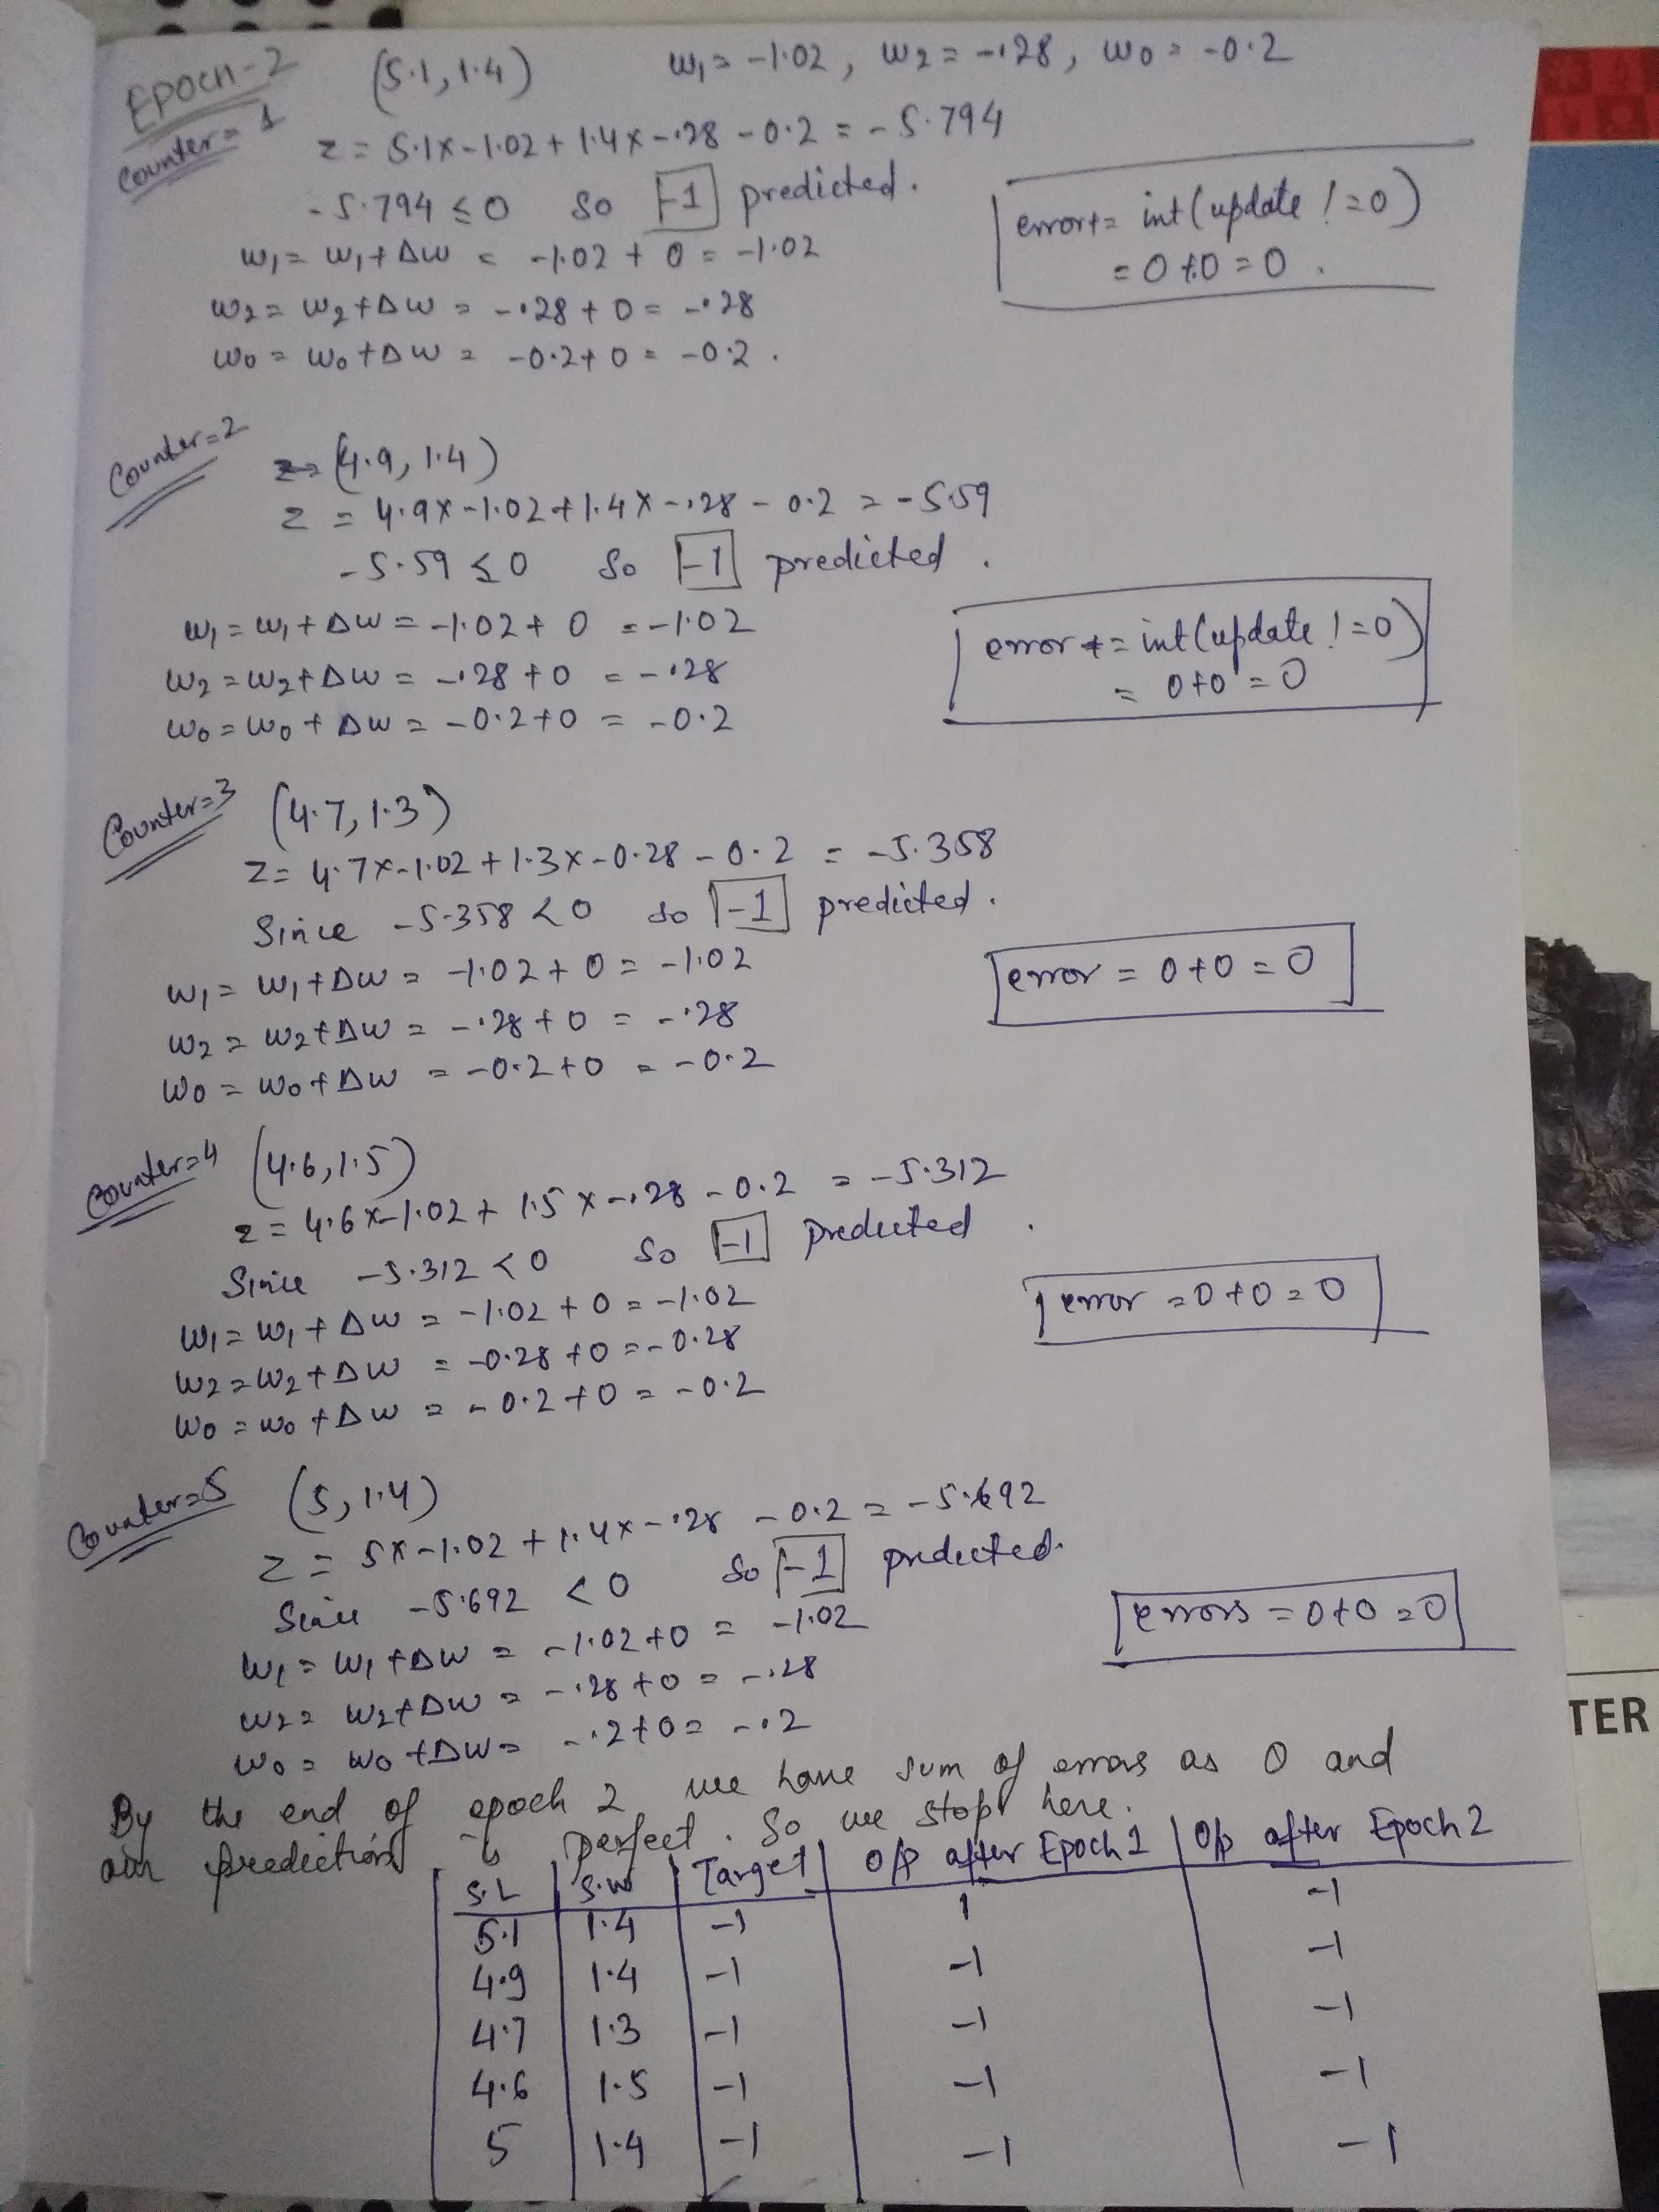 Epoch-2
(5.1, 1.4) w1 = -1.02, w2 = -.28, w0 = -0.2
Counter = 1
z = 5.1x-1.02 + 1.4x-.28 - 0.2 = -5.794
-5.794 ≤ 0 so -1 predicted.
w1 = w1 + Δw = -1.02 + 0 = -1.02
w2 = w2 + Δw = -.28 + 0 = -.28
w0 = w0 + Δw = -0.2 + 0 = -0.2.
error+= int(update != 0)
= 0+0 = 0.
Counter = 2
(4.9, 1.4)
z = 4.9x-1.02 + 1.4x-.28 - 0.2 = -5.59
-5.59 ≤ 0 so -1 predicted.
w1 = w1 + Δw = -1.02 + 0 = -1.02
w2 = w2 + Δw = -.28 + 0 = -.28
w0 = w0 + Δw = -0.2 + 0 = -0.2
error += int(update != 0)
= 0+0 = 0
Counter = 3
(4.7, 1.3)
z = 4.7x-1.02 + 1.3x-0.28 - 0.2 = -5.358
Since -5.358 < 0 so -1 predicted.
w1 = w1 + Δw = -1.02 + 0 = -1.02
w2 = w2 + Δw = -.28 + 0 = -.28
w0 = w0 + Δw = -0.2 + 0 = -0.2
error = 0+0 = 0
Counter = 4
(4.6, 1.5)
z = 4.6x-1.02 + 1.5x-.28 - 0.2 = -5.312
Since -5.312 < 0 so -1 predicted.
w1 = w1 + Δw = -1.02 + 0 = -1.02
w2 = w2 + Δw = -0.28 + 0 = -0.28
w0 = w0 + Δw = -0.2 + 0 = -0.2
error = 0+0 = 0
Counter = 5
(5, 1.4)
z = 5x-1.02 + 1.4x-.28 - 0.2 = -5.692
Since -5.692 < 0 so -1 predicted.
w1 = w1 + Δw = -1.02 + 0 = -1.02
w2 = w2 + Δw = -.28 + 0 = -.28
w0 = w0 + Δw = -.2 + 0 = -.2
errors = 0+0 = 0
By the end of epoch 2 we have sum of errors as 0 and
our prediction is perfect. So we stop here.
S.L S.W Target O/p after Epoch 1 O/p after Epoch 2
5.1 1.4 -1 1 -1
4.9 1.4 -1 -1 -1
4.7 1.3 -1 -1 -1
4.6 1.5 -1 -1 -1
5 1.4 -1 -1 -1
TER